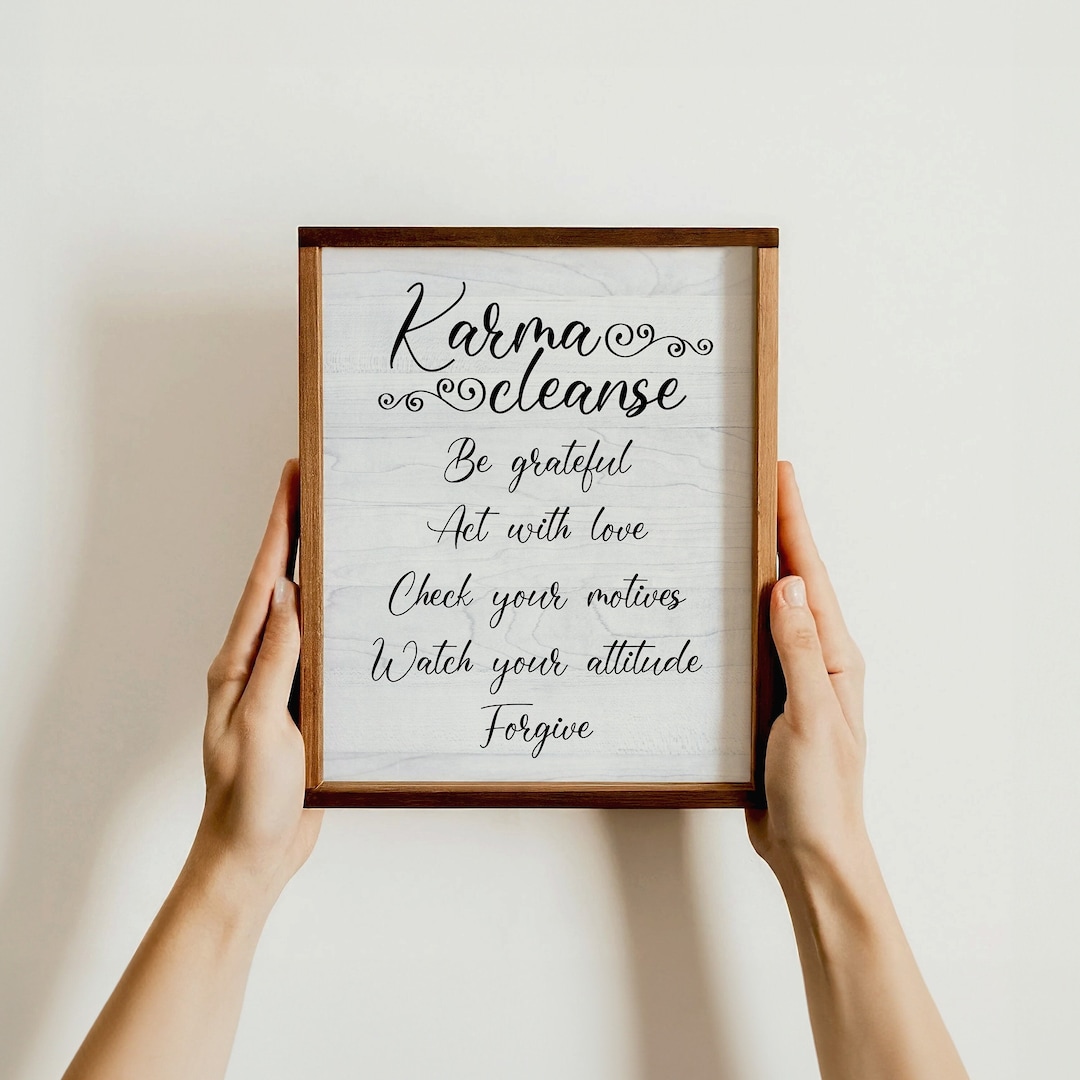 Karma
cleanse
Be grateful
Act with love
Check your motives
Watch your attitude
Forgive